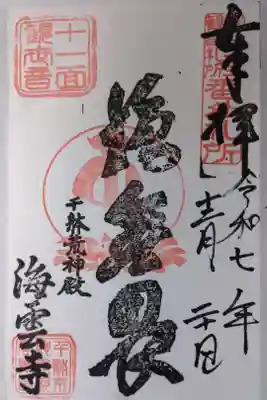 奉拝
令和七年
十二月二十日
施無畏
十一面
観世音
千躰荒神殿
海雲寺